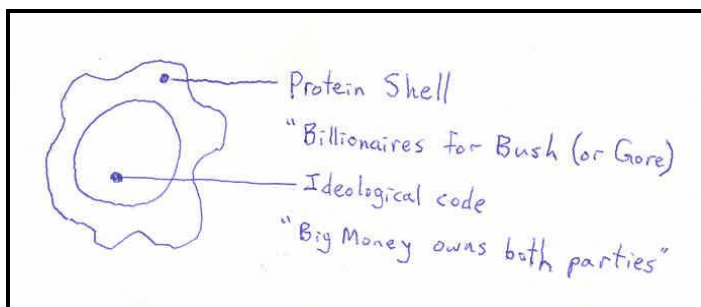 Protein Shell
"Billionaires for Bush (or Gore)
Ideological code
"Big Money owns both parties"